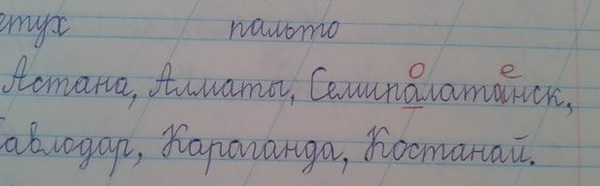 етух пальто
о е
Астана, Алматы, Семипалатинск,
Павлодар, Караганда, Костанай.